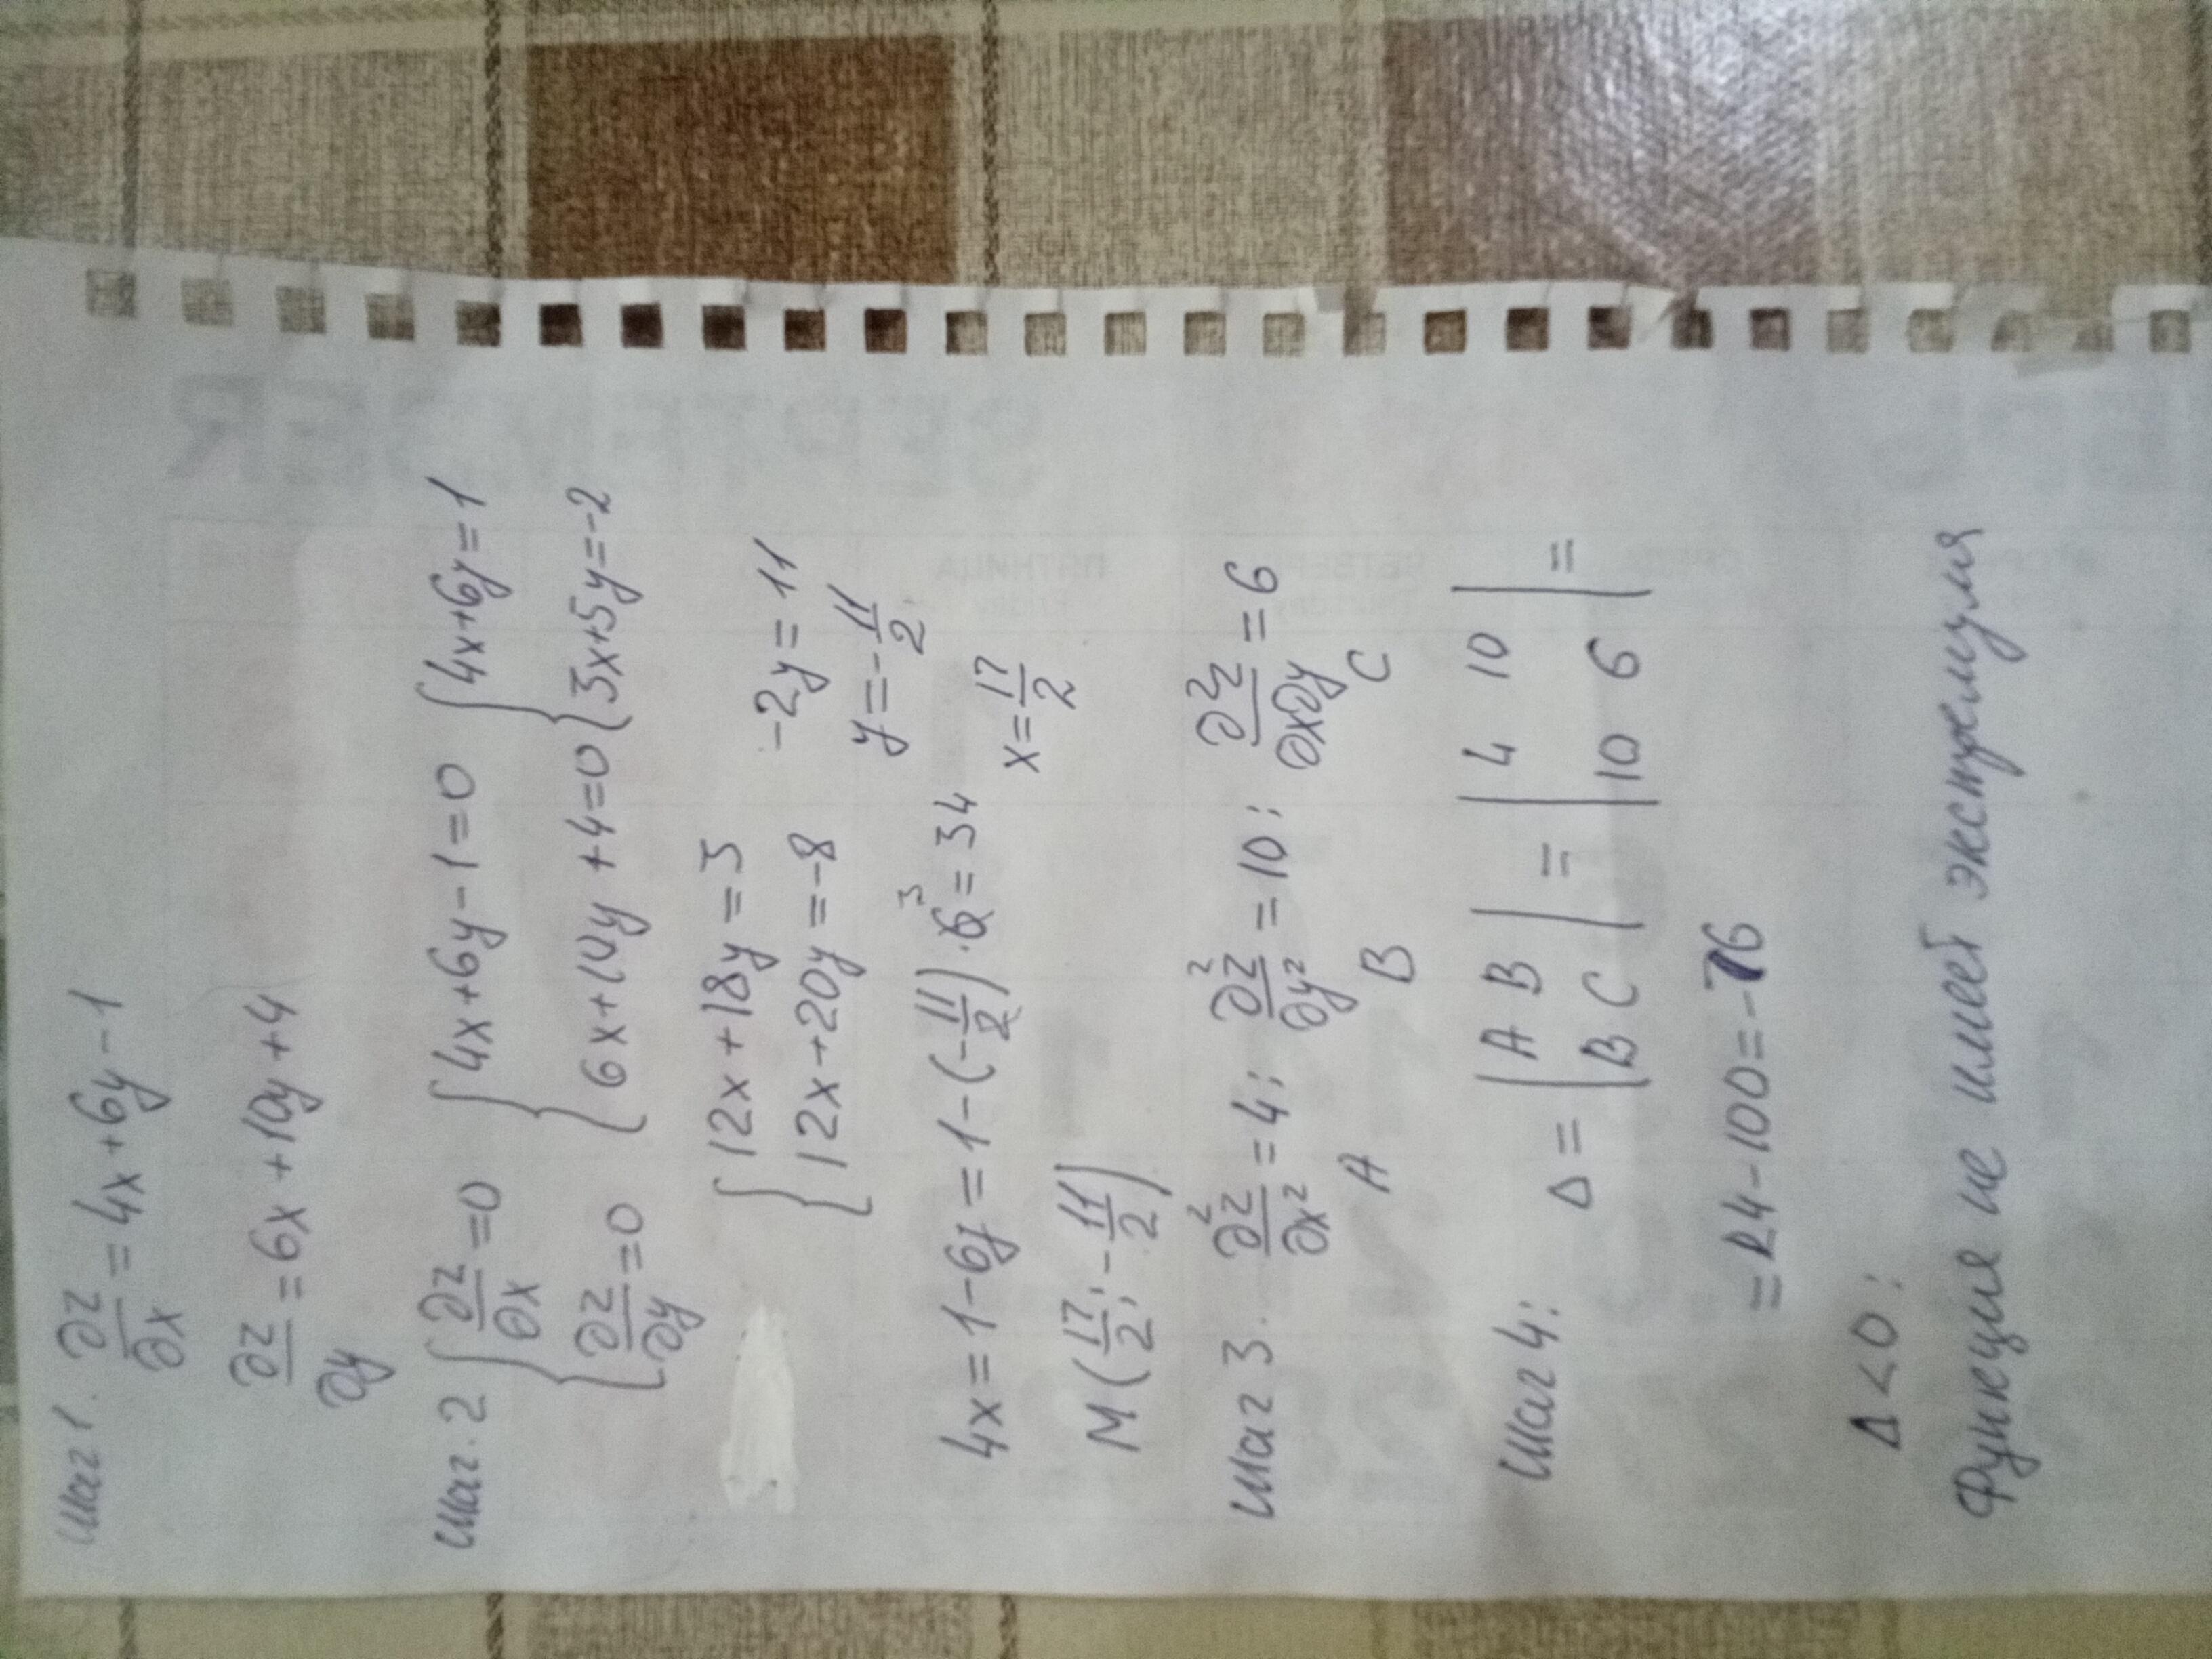 шаг 1. ∂z/∂x = 4x + 6y - 1
∂z/∂y = 6x + 10y + 4
шаг. 2 { ∂z/∂x = 0 { 4x + 6y - 1 = 0 { 4x + 6y = 1
{ ∂z/∂y = 0 { 6x + 10y + 4 = 0 { 3x + 5y = -2
{ 12x + 18y = 3 -2y = 11
{ 12x + 20y = -8 y = -11/2
4x = 1 - 6y = 1 - (-11/2) · 6 3 = 34 x = 17/2
M (17/2; -11/2)
шаг 3. ∂²z/∂x² = 4; ∂²z/∂y² = 10; ∂²z/∂x∂y = 6
A B C
шаг 4: Δ = |A B| = |4 10| =
|B C| |10 6|
= 24 - 100 = -76
Δ < 0:
Функция не имеет экстремума